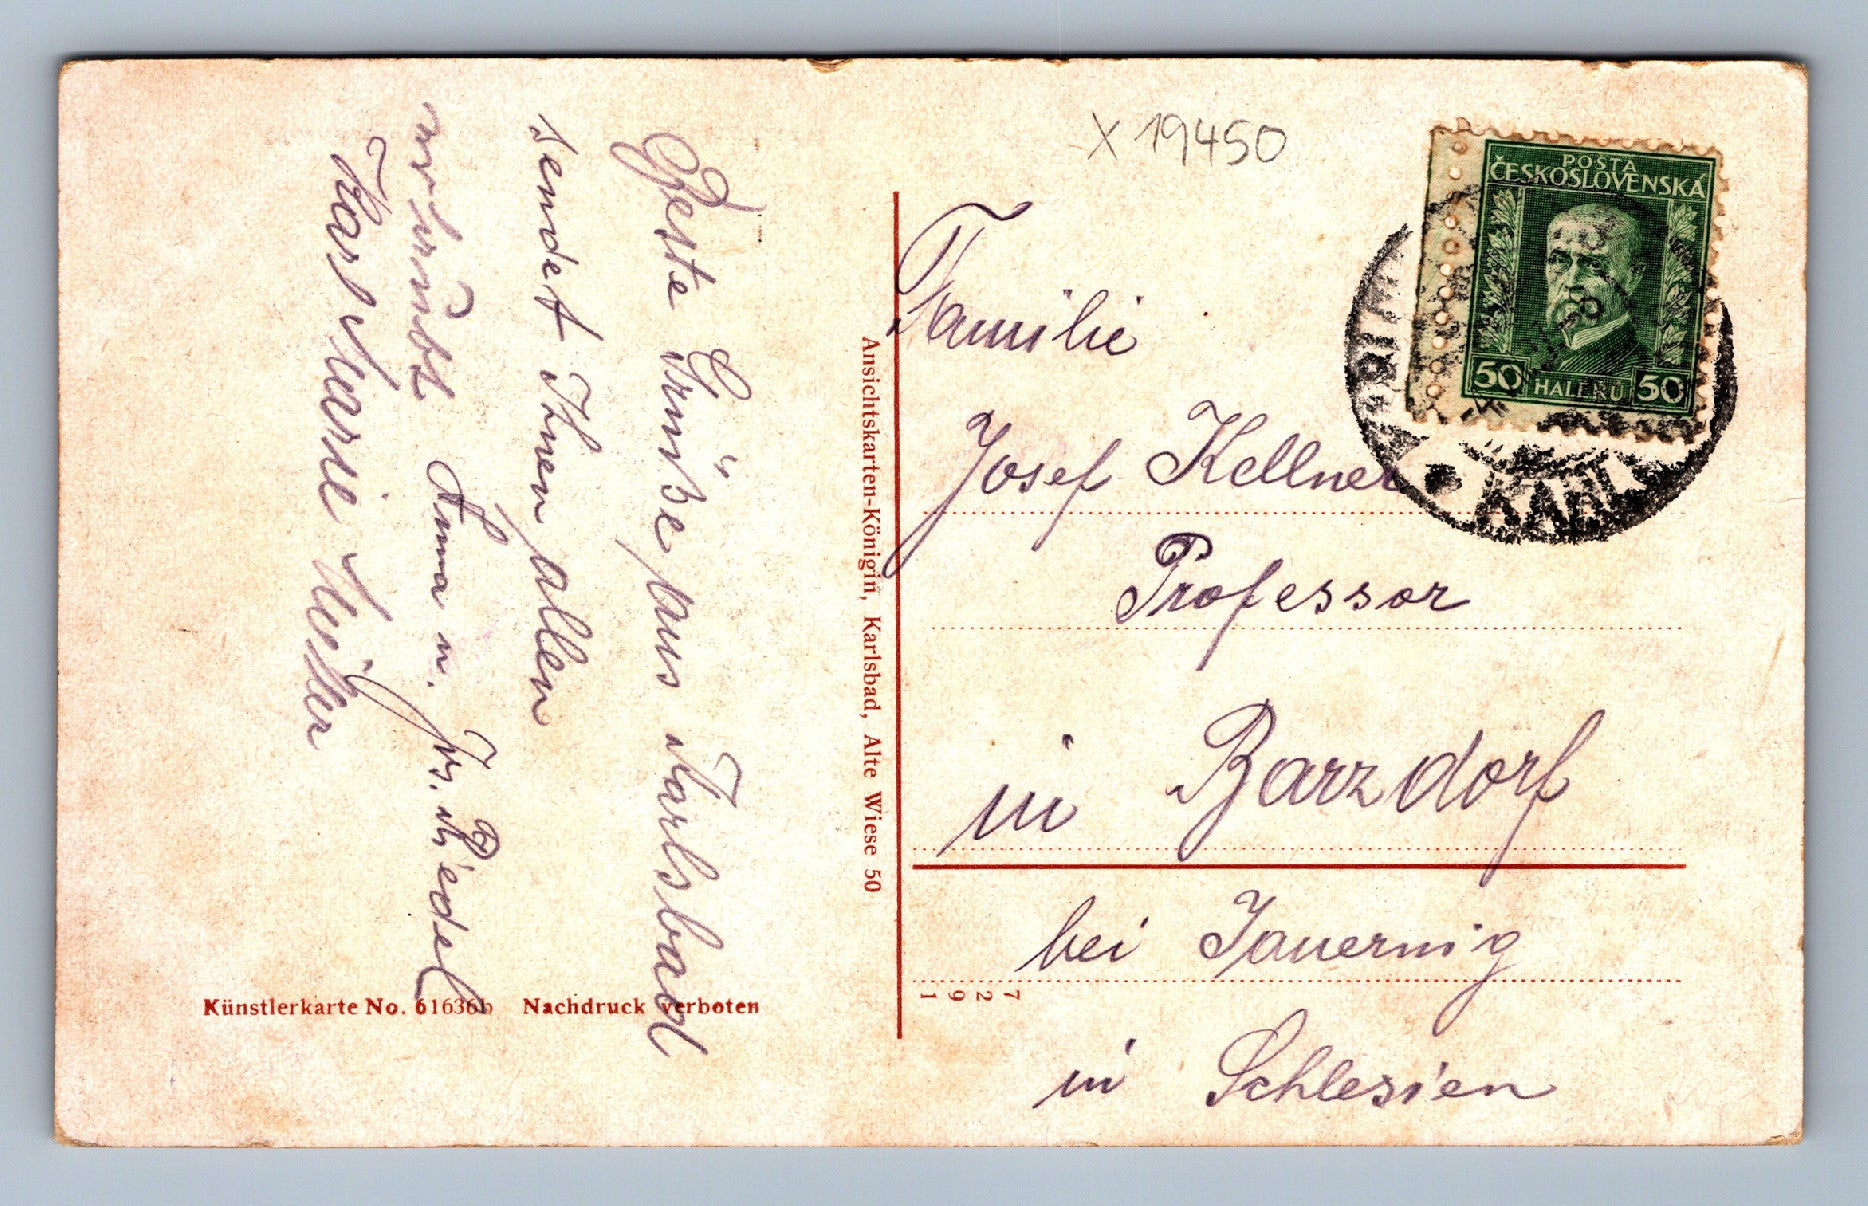 X 19450
POSTA
ČESKOSLOVENSKÁ
50 HALÉŘŮ 50
Beste Grüsse aus Karlsbad
sendet Ihnen allen
Anna u. Jos. Riedel
Karl Marie
Familie
Josef Kellner
Professor
in Barzdorf
bei Jauernig
in Schlesien
Ansichtskarten-Königin, Karlsbad, Alte Wiese 50
Künstlerkarte No. 61636b Nachdruck verboten
1927